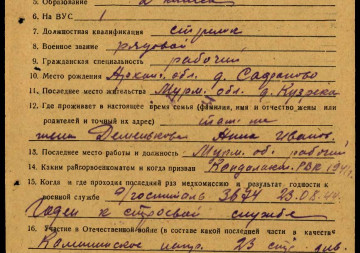 5. Образование 2 класса
6. На ВУС 1
7. Должностная квалификация стрелок
8. Военное звание рядовой
9. Гражданская специальность рабочий
10. Место рождения Архан. обл. д. Сафоново
11. Последнее место жительства Мурм. обл. д. Куярека
12. Где проживает в настоящее время семья (фамилия, имя и отчество жены или
родителей и точный их адрес) там-же
жена Деменькова Анна Иванов.
13. Последнее место работы и должность Мурм. об. рабочий
14. Каким райгорвоенкоматом и когда призван Кандалак. РВК 1941 г.
15. Когда и где проходил последний раз медкомиссию и результат годности к
военной службе э/госпиталь 3874 23.08.44
Годен к строевой службе
16. Участие в Отечественной войне (в составе какой последней части в качестве
Калининское напр. 23 стр. див.